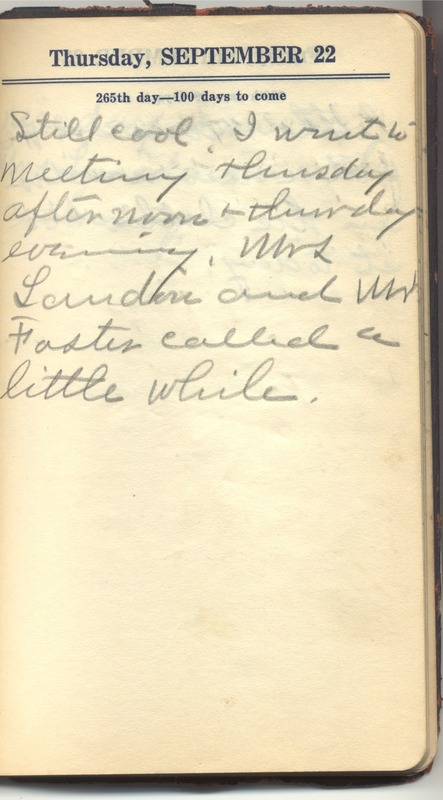 Thursday, SEPTEMBER 22
265th day—100 days to come
Still cool. I went to
meeting thursday
afternoon + thursday
evening, Mrs
Landon and Mr
Foster called a
little while.